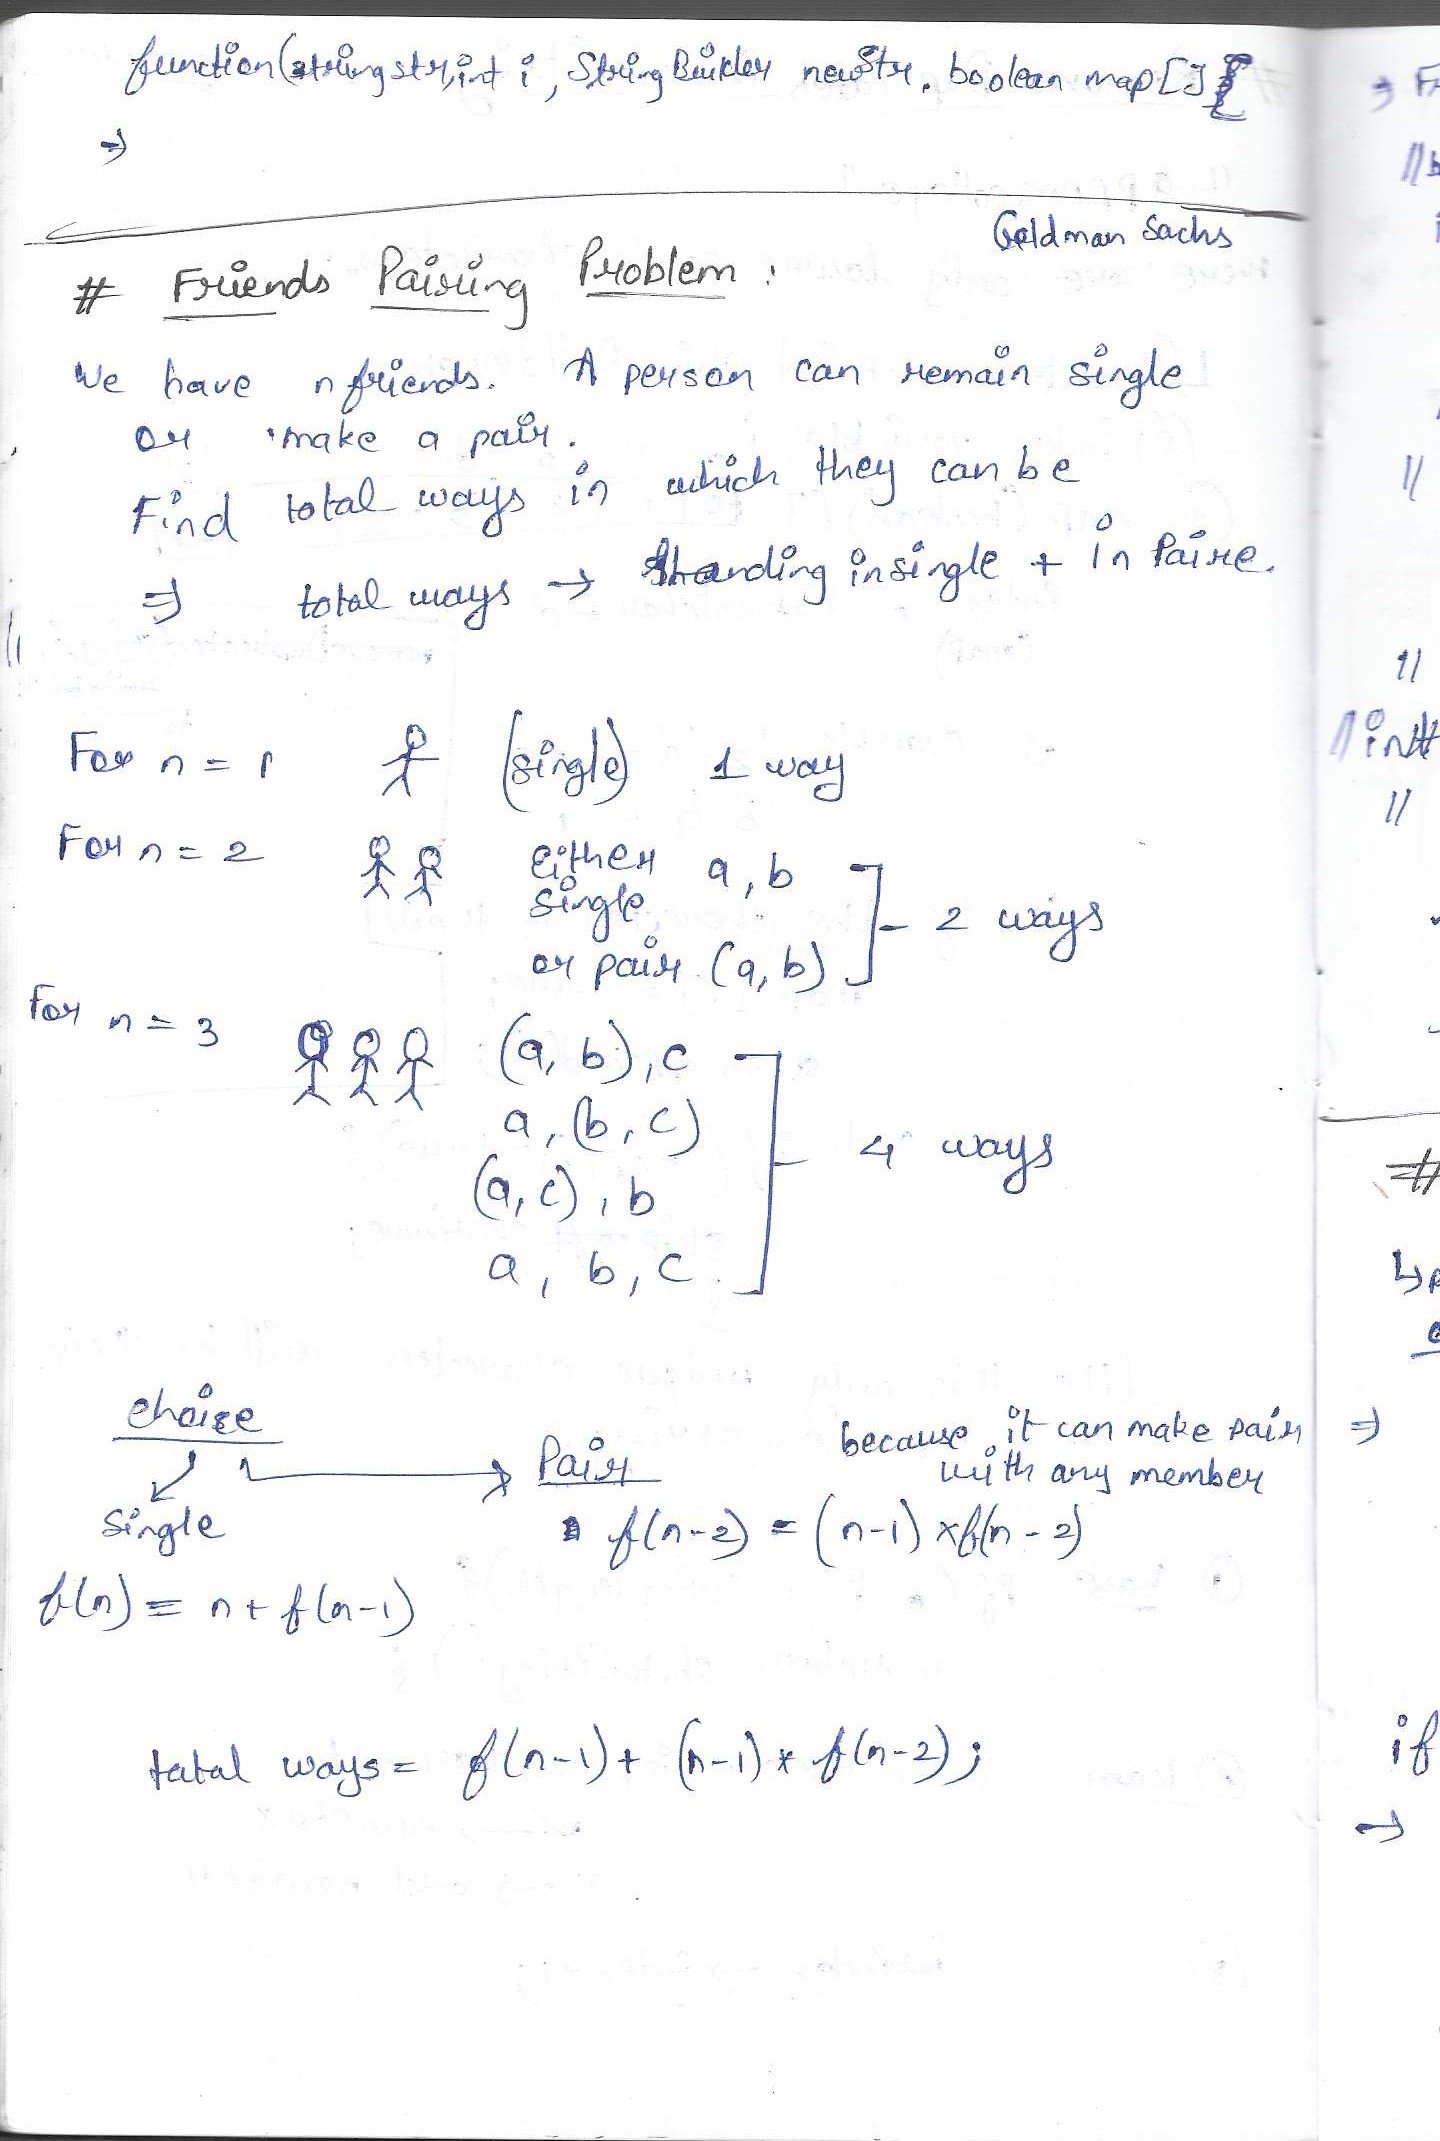 function(string str, int i, StringBuilder newStr, boolean map[]{
⇒
Goldman Sachs
# Friends Pairing Problem :
We have n friends. A person can remain single
or make a pair.
Find total ways in which they can be
⇒ total ways → Standing in single + in Paire.
For n = 1 (single) 1 way
For n = 2 either single a, b
or pair (a, b) 2 ways
For n = 3 (a, b), c
a, (b, c)
4 ways
(a, c), b
a, b, c
choice
because it can make pair
Pair
with any member
single
f(n-2) = (n-1) × f(n-2)
f(n) = n + f(n-1)
total ways = f(n-1) + (n-1) * f(n-2);
⇒
//
//
//
//
#
⇒
if
→